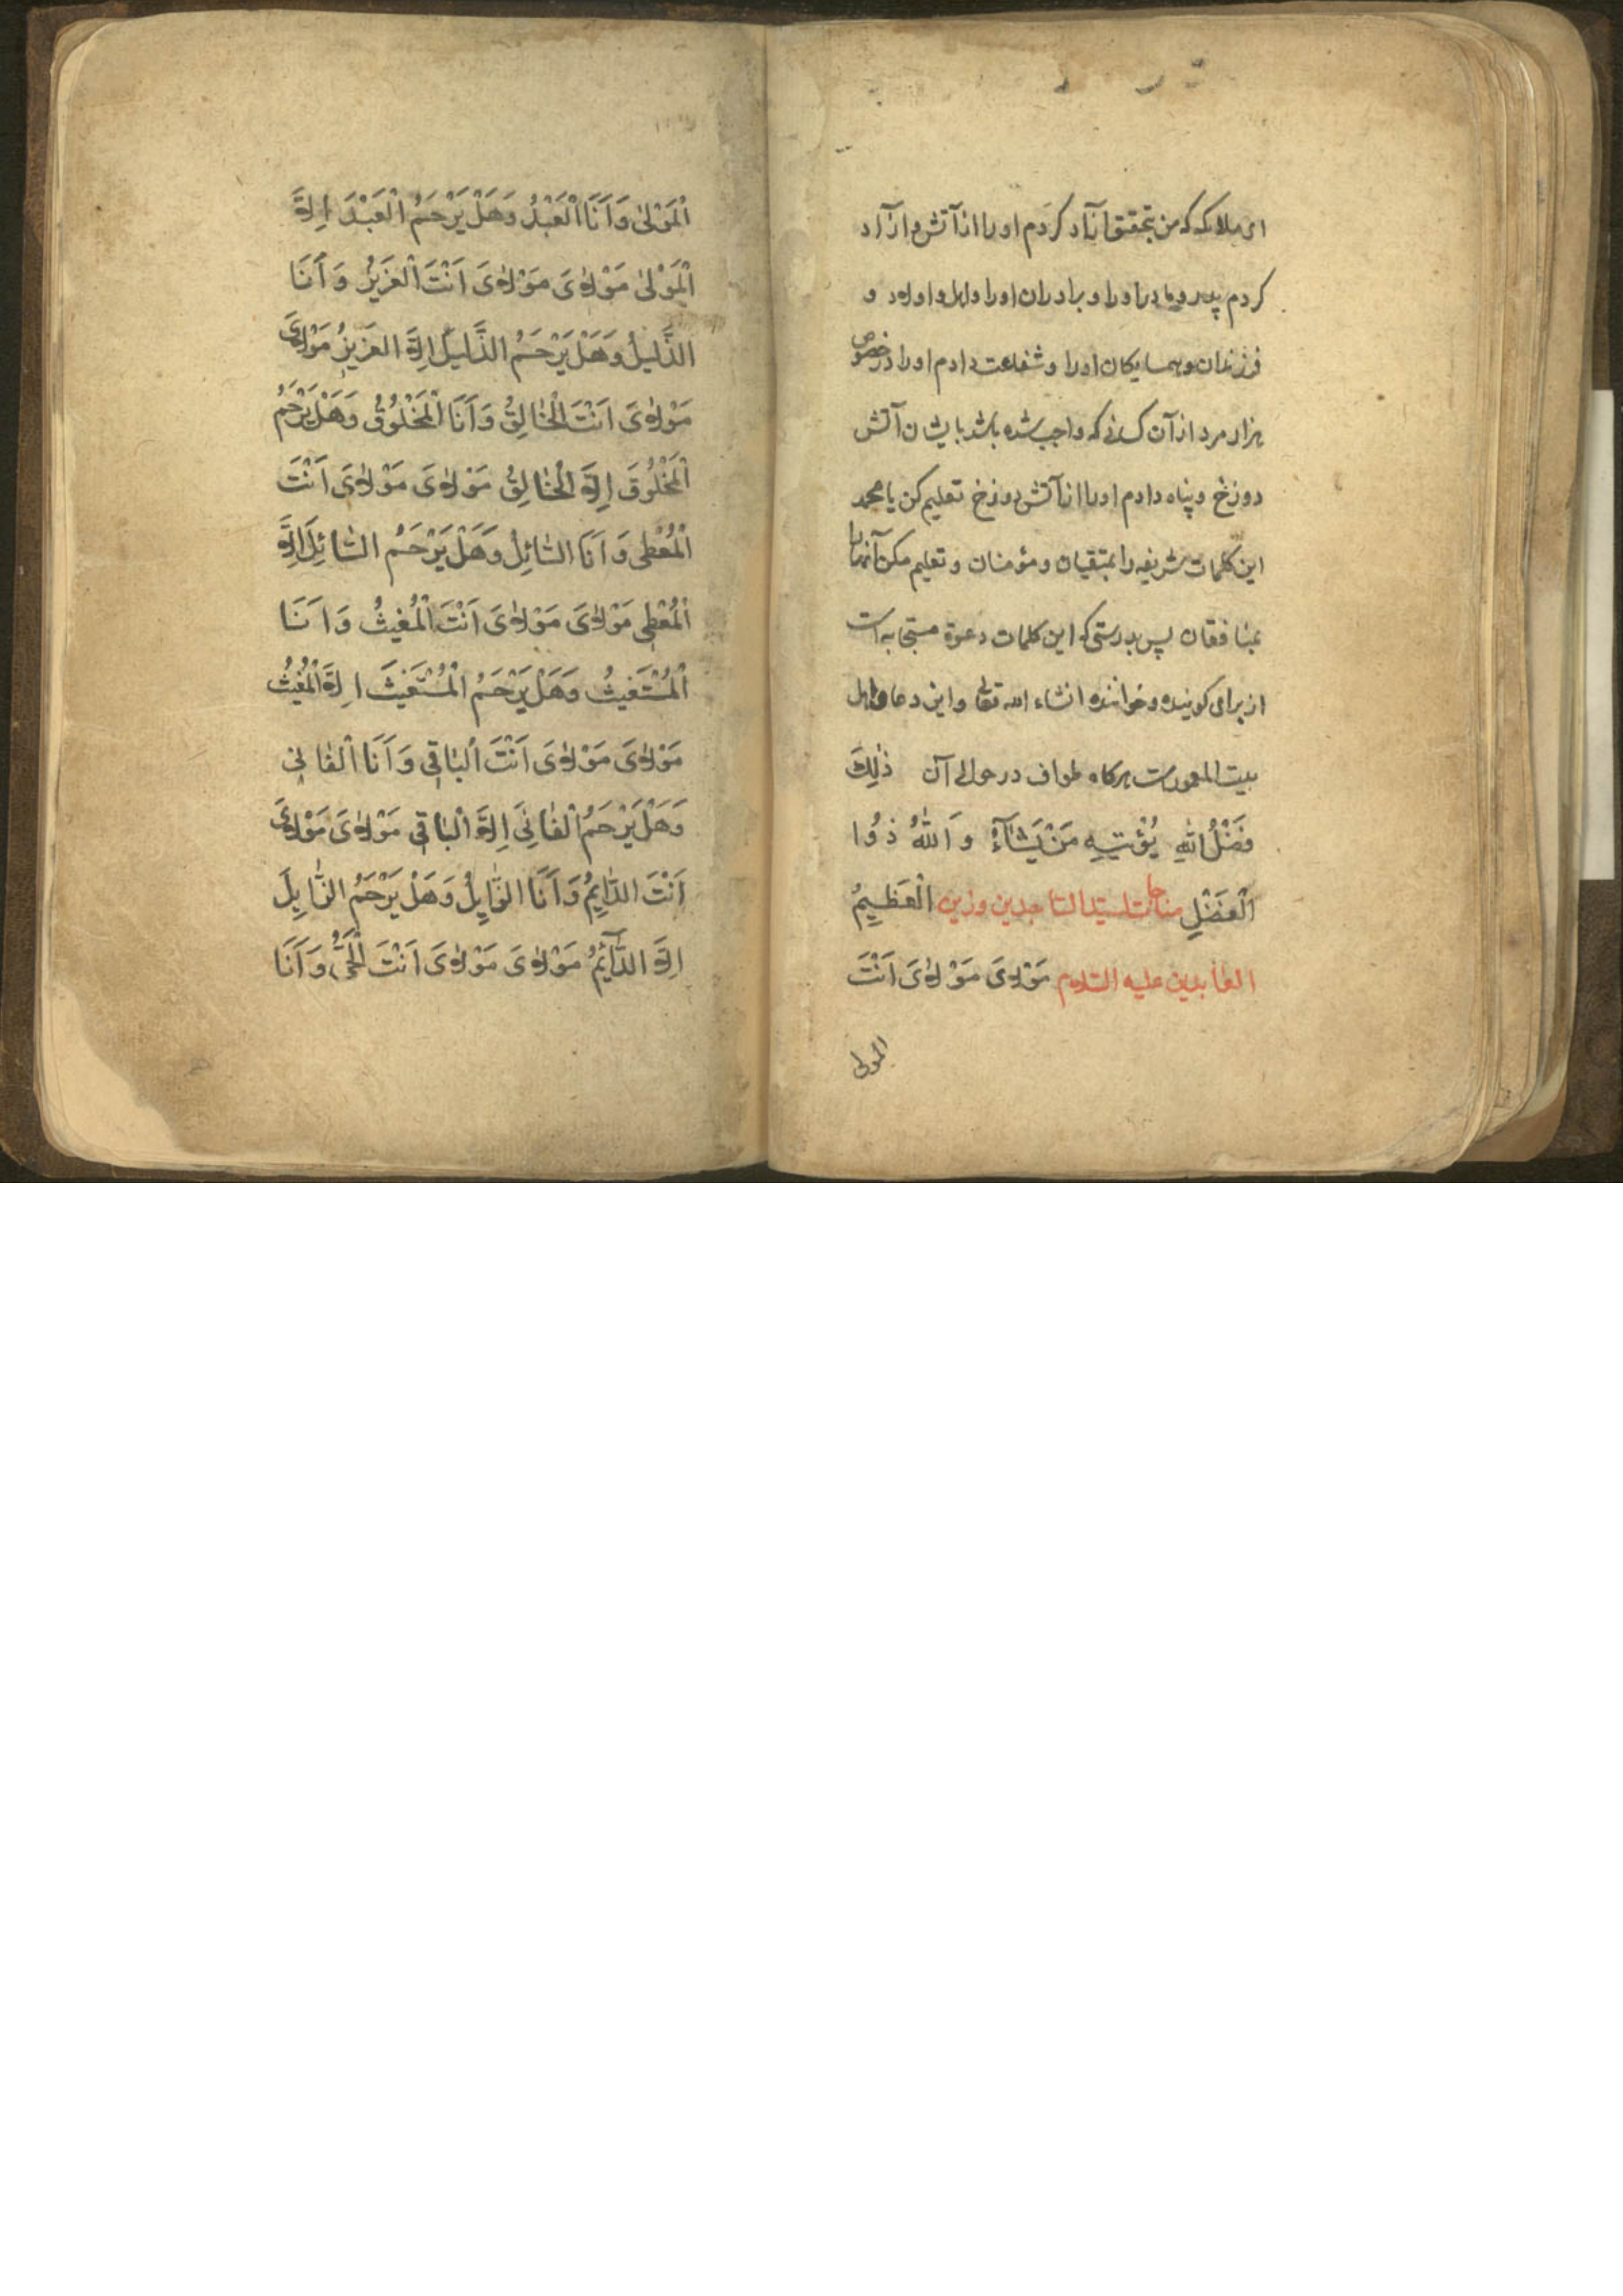 ای ملائکه که من بتحقیق آزاد کردم او را از آتش و ازآد
کردم پدر و مادر او را و برادران او را و اهل و اولاد و
فرزندان و همسایکان او را و شفاعت دادم او را در خصوص
هزار مرد از آن کسانی که واجب شده باشد بایشان آتش
دوزخ و پناه دادم او را از آتش دوزخ تعلیم کن یا محمد
این کلمات شریفه را بمتقیان و مؤمنان و تعلیم مکن آنها را
بمنافقان پس بدرستی که این کلمات دعوة مستجابه است
از برای کوینده و خواننده انشاء الله تعالی و این دعا اهل
بیت المعمور است هرکاه طواف در حوالی آن ذٰلِكَ
فَضْلُ اللهِ يُؤْتِيهِ مَنْ يَشَآءُ وَ اللهُ ذُوا
الْفَضْلِ الْعَظِيمُ مناجات سيّد الساجدين وزين
العابدين عليه السلام مَوْلٰاىَ مَوْلٰاىَ اَنْتَ
المولى
اَلْمَوْلىٰ وَ اَنَا الْعَبْدُ وَ هَلْ يَرْحَمُ الْعَبْدَ اِلَّا
الْمَوْلىٰ مَوْلٰاىَ مَوْلٰاىَ اَنْتَ الْعَزِيزُ وَ اَنَا
الذَّلِيلُ وَ هَلْ يَرْحَمُ الذَّلِيلَ اِلَّا الْعَزِيزُ مَوْلٰاىَ
مَوْلٰاىَ اَنْتَ الْخٰالِقُ وَ اَنَا الْمَخْلُوقُ وَ هَلْ يَرْحَمُ
الْمَخْلُوقَ اِلَّا الْخٰالِقُ مَوْلٰاىَ مَوْلٰاىَ اَنْتَ
الْمُعْطِى وَ اَنَا السّٰائِلُ وَ هَلْ يَرْحَمُ السّٰائِلَ اِلَّا
الْمُعْطِى مَوْلٰاىَ مَوْلٰاىَ اَنْتَ الْمُغِيثُ وَ اَنَا
الْمُسْتَغِيثُ وَ هَلْ يَرْحَمُ الْمُسْتَغِيثَ اِلَّا الْمُغِيثُ
مَوْلٰاىَ مَوْلٰاىَ اَنْتَ الْبٰاقِى وَ اَنَا الْفٰانِى
وَ هَلْ يَرْحَمُ الْفٰانِىَ اِلَّا الْبٰاقِى مَوْلٰاىَ مَوْلٰاىَ
اَنْتَ الدّٰايِمُ وَ اَنَا الزّٰايِلُ وَ هَلْ يَرْحَمُ الزّٰايِلَ
اِلَّا الدّٰآئِمُ مَوْلٰاىَ مَوْلٰاىَ اَنْتَ الْحَىُّ وَ اَنَا